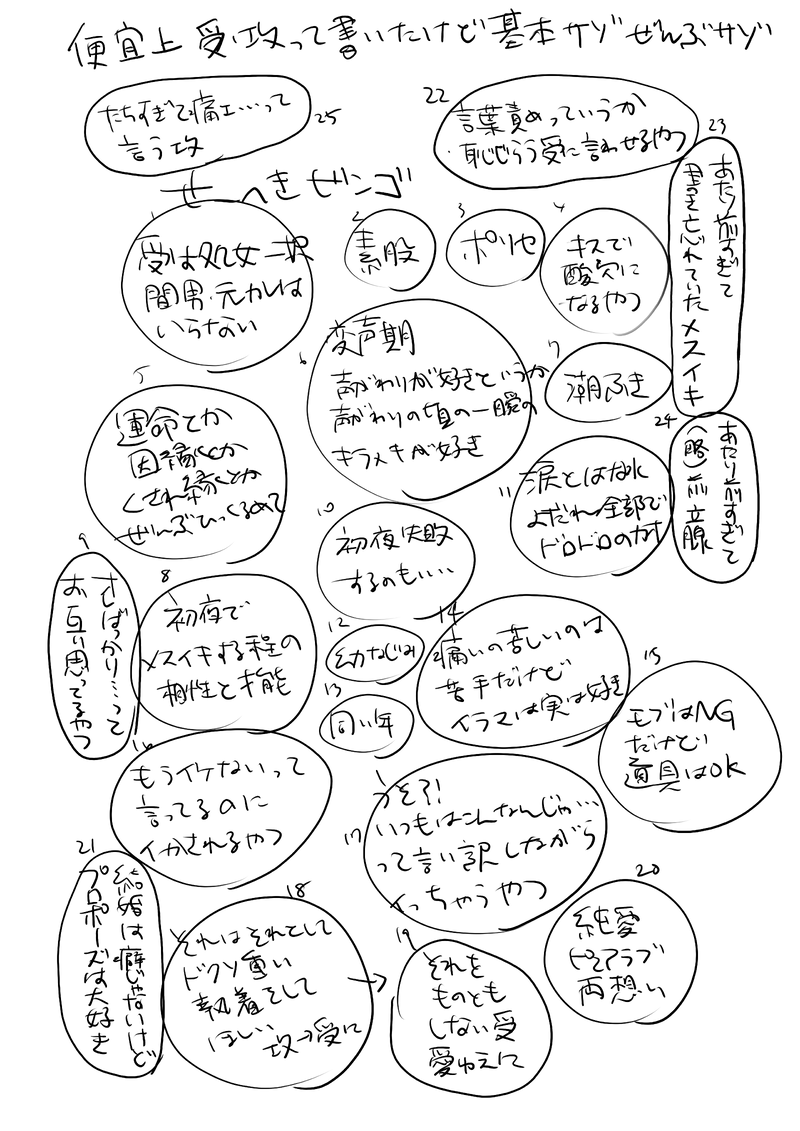 便宜上 受・攻って書いたけど基本サゾ ぜんぶサゾ
せーへきゼンゴ
1
受は処女一択
間男・元カレは
いらない
2
素股
3
ポリセ
4
キスで
酸欠に
なるやつ
5
運命とか
因縁とか
くされ縁とか
ぜんぶひっくるめて
6
変声期
声がわりが好きというか
声がわりの頃の一瞬の
キラメキが好き
7
潮ふき
8
初夜で
メスイキする程の
相性と才能
9
さばっかり…って
お互い思ってるやつ
10
初夜失敗
するのもいい
11
涙とはな水
よだれ全部で
ドロドロのカオ
12
幼なじみ
13
同い年
14
痛いの苦しいのは
苦手だけど
イラマは実は好き
15
モブはNG
だけど
道具はOK
16
もうイケないって
言ってるのに
イかされるやつ
17
うそ?!
いつもはこんなんじゃ…
って言い訳しながら
イっちゃうやつ
18
それはそれとして
ドクソ重い
執着をして
ほしい
攻→受に
19
それを
ものとも
しない受
愛ゆえに
20
純愛
ピュアラブ
両想い
21
結婚は癖じゃないけど
プロポーズは大好き
22
言葉責めっていうか
恥じらう受に言わせるやつ
23
あたり前すぎて
書き忘れていたメスイキ
24
あたり前すぎて
(略)前立腺
25
たちすぎて痛ェ…って
言う攻